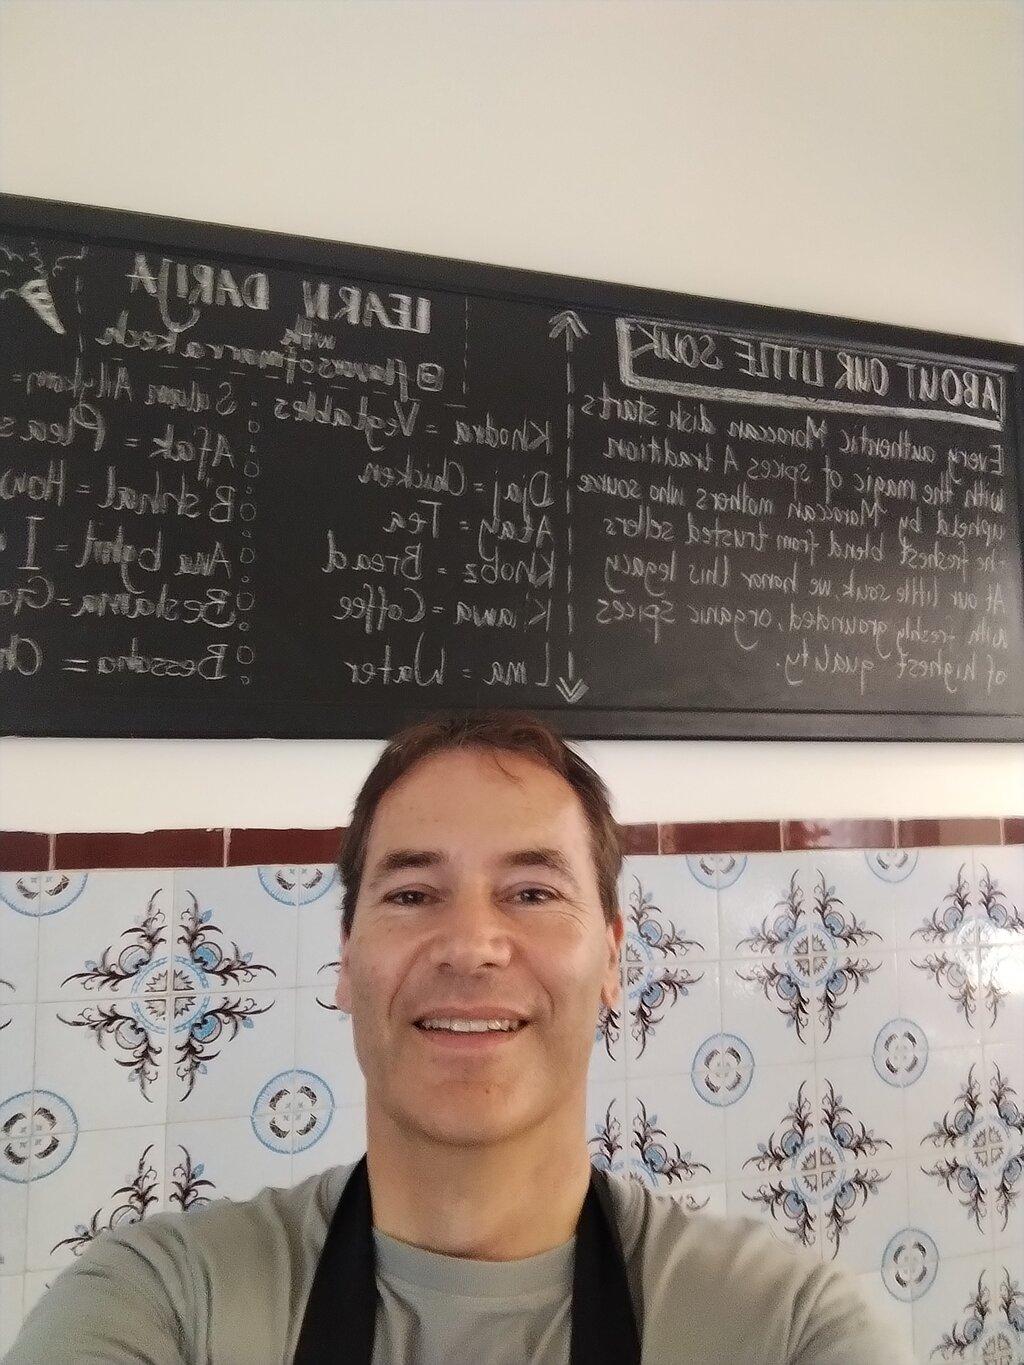 ABOUT OUR LITTLE SOUK
Every authentic Moroccan dish starts
with the magic of spices A tradition
upheld by Moroccan mothers who source
the freshest blend from trusted sellers
At our little souk, we honor this legacy
with freshly grounded, organic spices
of highest quality.
LEARN DARIJA
with
@flavorsofmarrakech
Khodra = Vegtables
Djaj = Chicken
Atay = Tea
Khobz = Bread
K'awa = Coffee
Lma = Water
Salam Allykom =
Afak = Pleas
B'shhal = How
Ana bghit = I
Beslama = Go
Bessaha = Ch